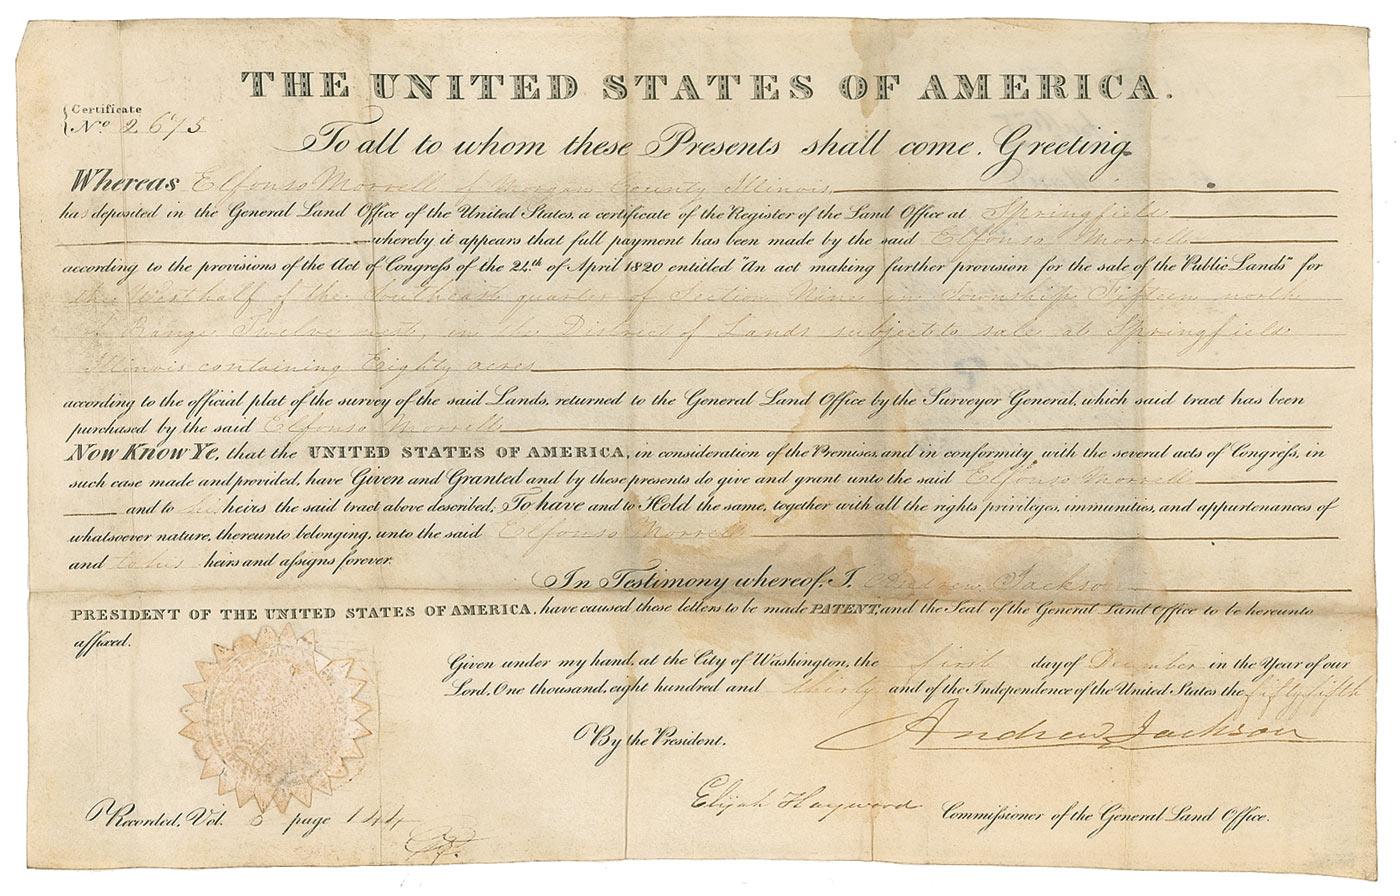 THE UNITED STATES OF AMERICA.
Certificate
No. 2675
To all to whom these Presents shall come, Greeting.
Whereas Elfonso Morrell of Morgan County Illinois,
has deposited in the General Land Office of the United States, a certificate of the Register of the Land Office at Springfield
whereby it appears that full payment has been made by the said Elfonso Morrell
according to the provisions of the Act of Congress of the 24th of April 1820 entitled "An act making further provision for the sale of the Public Lands" for
the West half of the Southeast quarter of Section Nine in Township Fifteen north
of Range Twelve west, in the District of Lands subject to sale at Springfield
Illinois containing Eighty acres
according to the official plat of the survey of the said Lands, returned to the General Land Office by the Surveyor General, which said tract has been
purchased by the said Elfonso Morrell
Now Know Ye, that the UNITED STATES OF AMERICA, in consideration of the Premises, and in conformity with the several acts of Congress, in
such case made and provided, have Given and Granted and by these presents do give and grant unto the said Elfonso Morrell
and to his heirs the said tract above described; To have and to Hold the same, together with all the rights privileges, immunities, and appurtenances of
whatsoever nature, thereunto belonging, unto the said Elfonso Morrell
and to his heirs and assigns forever.
In Testimony whereof, I, Andrew Jackson
PRESIDENT OF THE UNITED STATES OF AMERICA, have caused these letters to be made PATENT, and the Seal of the General Land Office to be hereunto
affixed.
Given under my hand, at the City of Washington, the first day of December in the Year of our
Lord, One thousand, eight hundred and thirty and of the Independence of the United States the fifty fifth
Andrew Jackson
By the President.
Elijah Hayward Commissioner of the General Land Office.
Recorded, Vol. 6 page 144